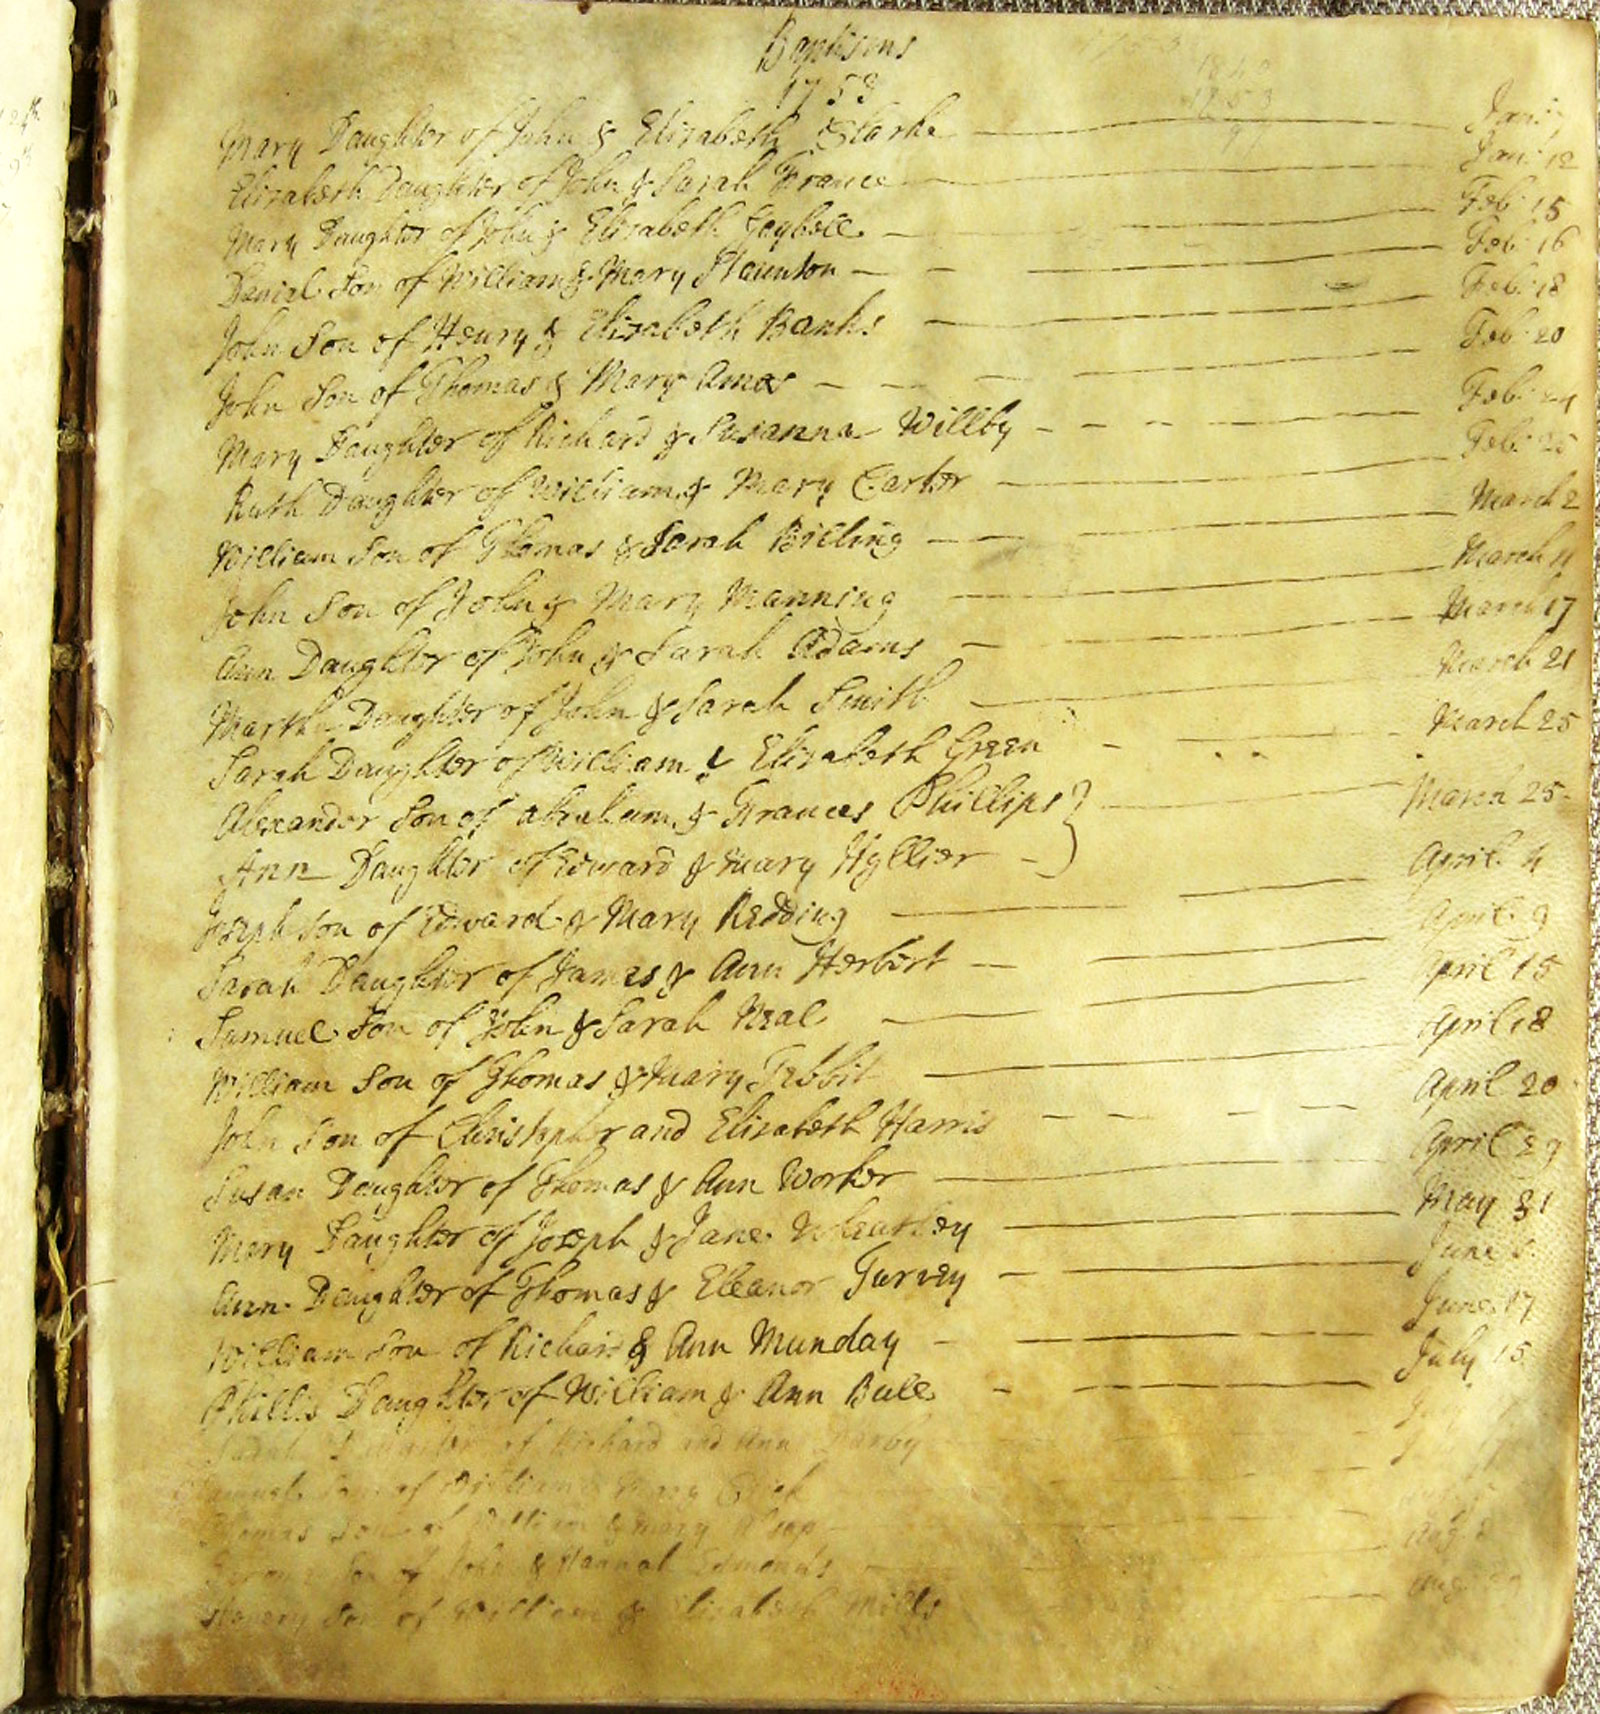 Baptisms
1753
Mary Daughter of John & Elizabeth Clarke Jan: 7
Elizabeth Daughter of John & Sarah France Jan: 12
Mary Daughter of John & Elizabeth Feb: 15
Daniel Son of William & Mary Staunton Feb: 16
John Son of Henry & Elizabeth Banks Feb: 18
John Son of Thomas & Mary Amos Feb: 20
Mary Daughter of Richard & Susanna Willby Feb: 24
Ruth Daughter of William & Mary Carter Feb:
William Son of Thomas & Sarah Billing March 2
John Son of John & Mary Manning March 11
Ann Daughter of John & Sarah Adams March 17
Martha Daughter of John & Sarah Smith March 21
Sarah Daughter of William & Elizabeth Green March 25
Alexander Son of Abraham & Frances Phillips
Ann Daughter of Edward & Mary Hyllier March 25
Joseph Son of Edward & Mary Redding April 4
Sarah Daughter of James & Ann Herbert April 9
Samuel Son of John & Sarah Neal April 15
William Son of Thomas & Mary Tebbit April 18
John Son of Christopher and Elizabeth Harris April 20
Susan Daughter of Thomas & Ann Worker April 29
Mary Daughter of Joseph & Jane Wheatley May 31
Ann Daughter of Thomas & Eleanor Turvey June
William Son of Richard & Ann Munday June 17
Phillis Daughter of William & Ann Bull July 15
Sarah Daughter of Richard and Ann
Samuel Son of William & Mary
Thomas Son of William & Mary
Son of John & Hannah Edmonds Aug: 2
Henery Son of William & Elizabeth Mills Aug: